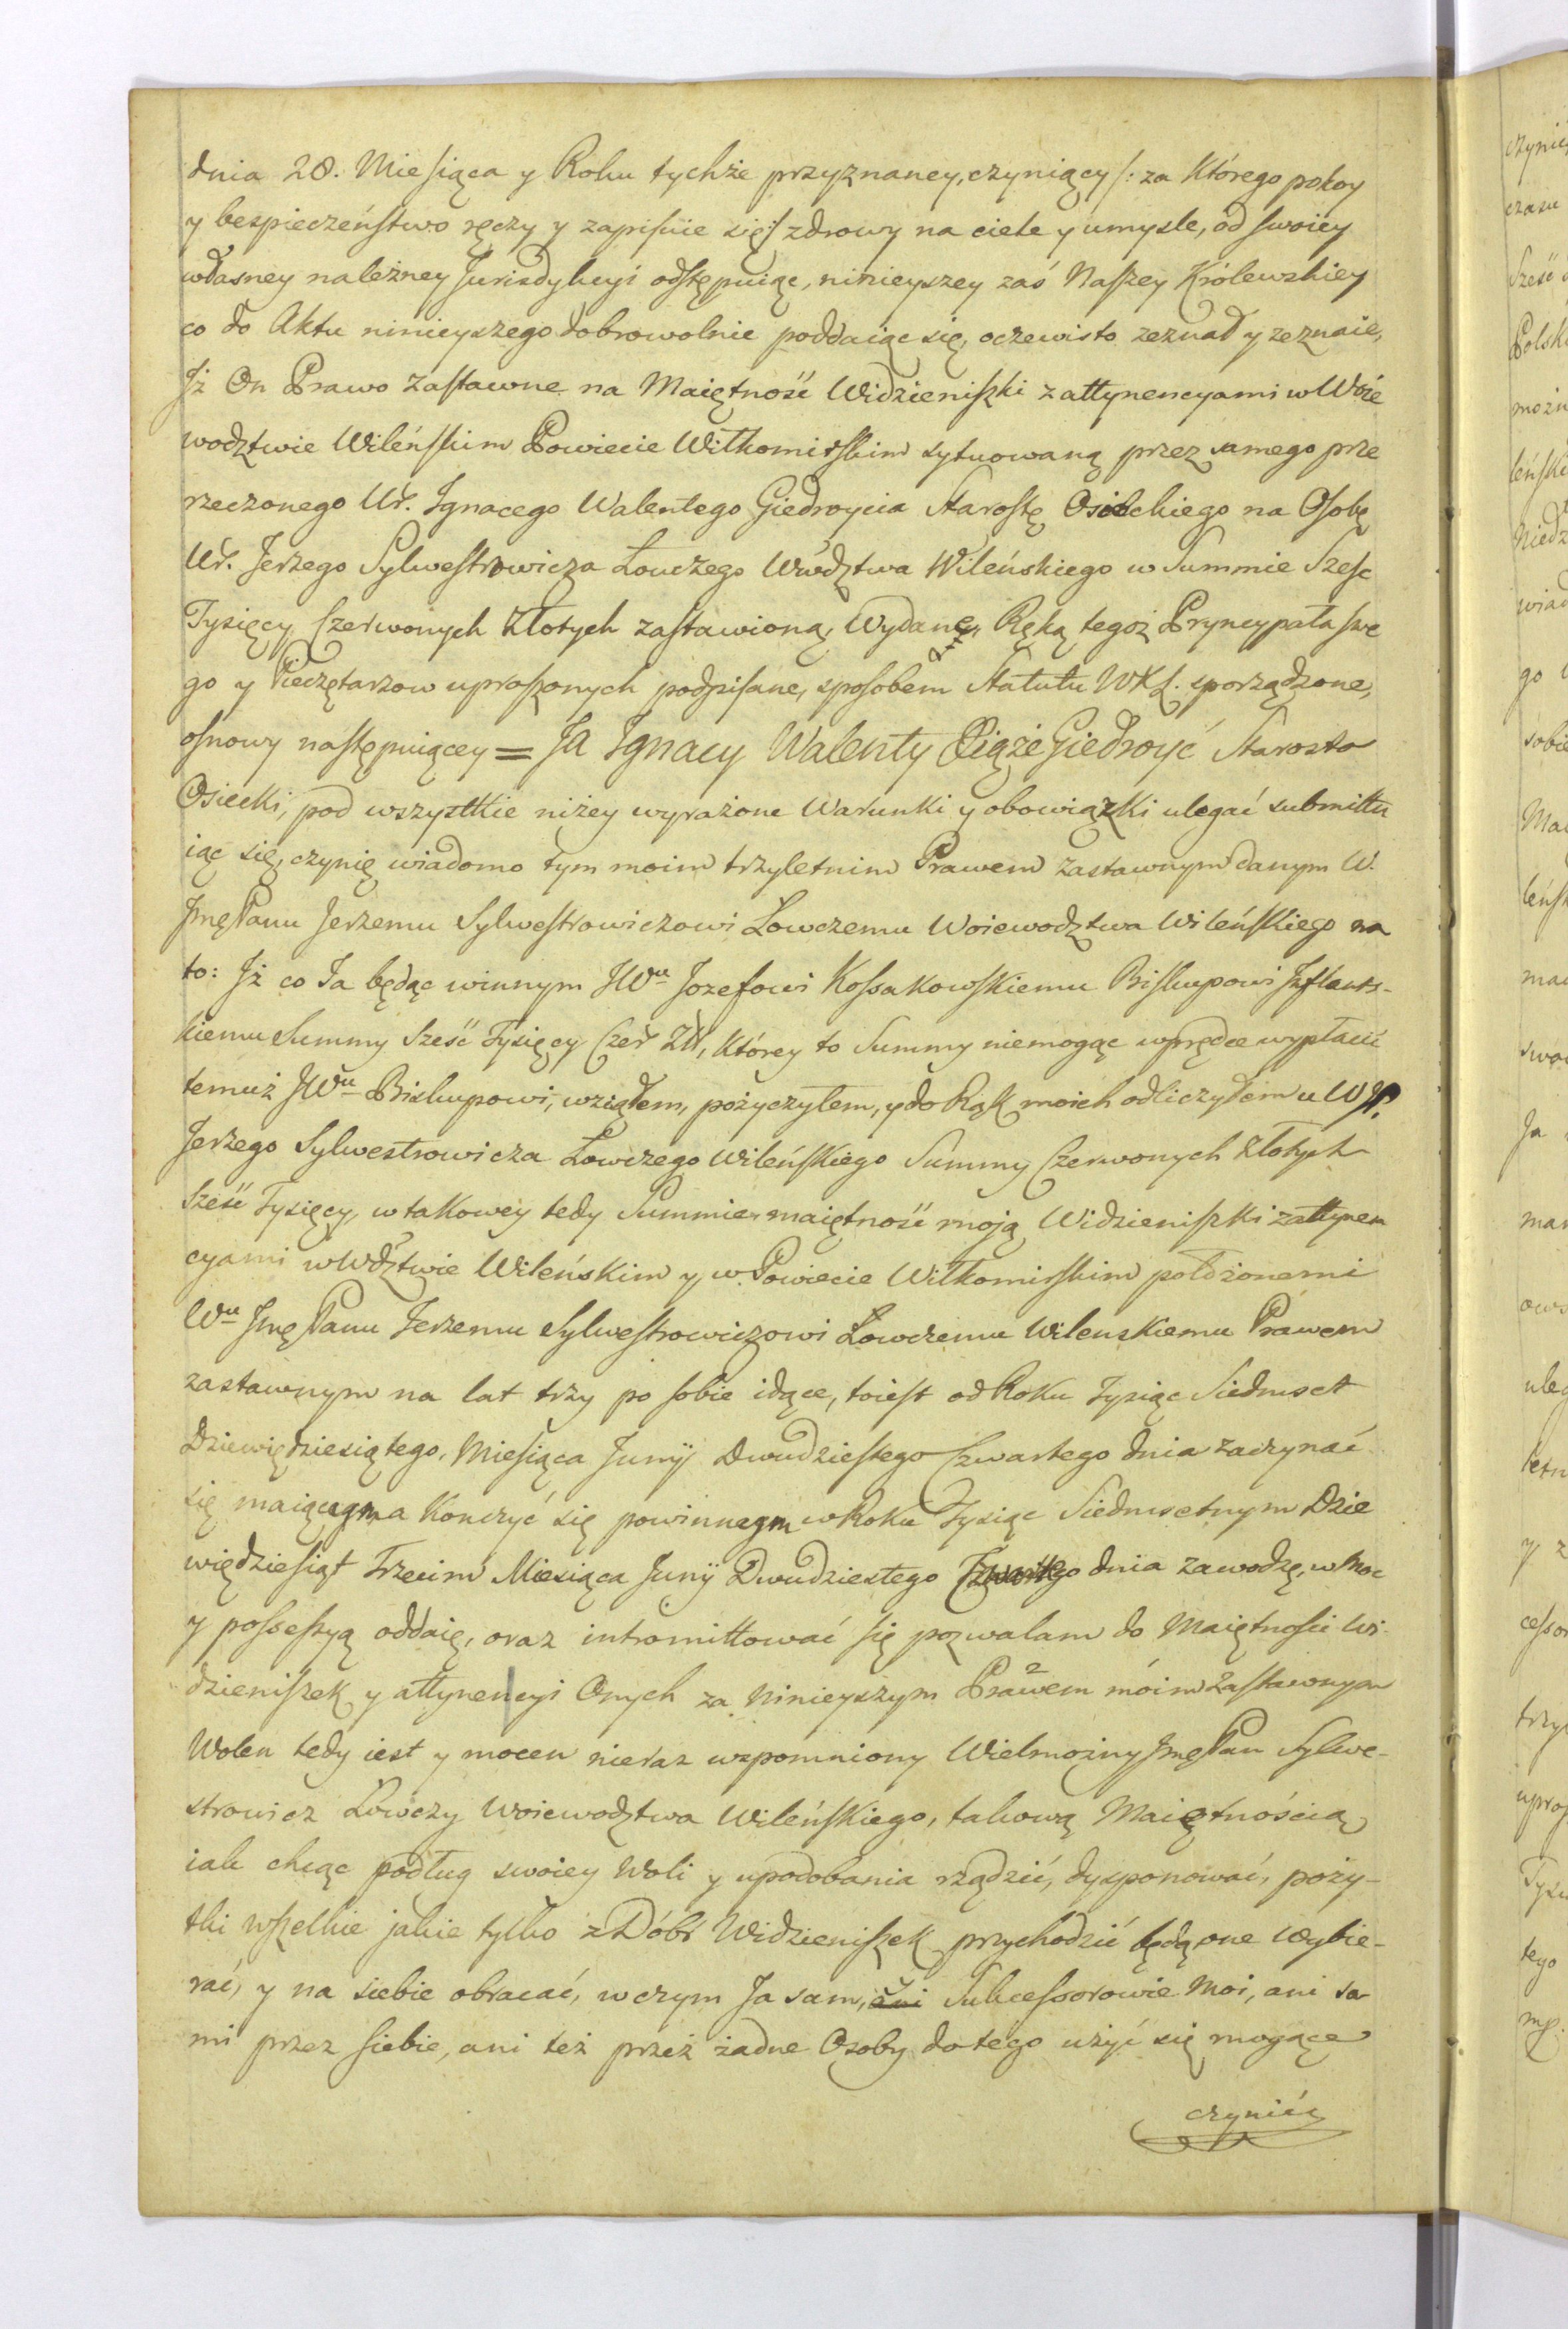 dnia 28. Miesiąca y Roku tychże przyznaney, czyniący /: za Którego pokoy
y bespieczeństwo ręczy y zapisuie się :/ zdrowy na ciele y umysle, od swoiey
własney należney Jurisdykcyi odstępuiąc, ninieyszey zaś Naszey Królewskiey
co do Aktu ninieyszego dobrowolnie poddaiąc się, oczewisto zeznał y zeznaie,
Jż On Prawo zastawne na Maiętność Widzieniszki z attynencyami w Woie
wodztwie Wileńskim Powiecie Wiłkomirskim sytuowaną przez samego prze
rzeczonego Ur. Ignacego Walentego Giedroycia Starostę Osieckiego na Osobę
Ur. Jerzego Sylwestrowicza Łowczego Wwdztwa Wileńskiego w Summie Szesc
Tysięcy Czerwonych Złotych zastawioną, Wydane, Ręką tegoż Pryncypała swe
go y Pieczętarzow uproszonych podpisane, sposobem Statutu WXL. sporządzone,
osnowy następuiącey = Ja Ignacy Walenty Xiąże Giedroyć Starosta
Osiecki, pod wszystkie niżey wyrażone Warunki y obowiązki ulegać submittu
iąc się, czynię wiadomo tym moim trzyletnim Prawem zastawnym danym W.
Jmę Panu Jerzemu Sylwestrowiczowi Łowczemu Woiewodztwa Wileńskiego na
to: Jż co Ja będąc winnym JWu Jozefowi Kossakowskiemu Biskupowi Inflants-
kiemu Summy Sześć Tysięcy Czer Zł, Którey to Summy niemogąc wprędce wypłacić
temuż JWu Biskupowi, wziąłem, pożyczyłem, y do Rąk moich odliczyłem u WJP.
Jerzego Sylwestrowicza Łowczego Wileńskiego Summy Czerwonych Złotych
Sześć Tysięcy, w takowey tedy Summie maiętność moją Widzieniszki z attynen
cyami w Wdztwie Wileńskim y w Powiecie Wiłkomirskim położonemi
Wu Jmę Panu Jerzemu Sylwestrowiczowi Łowczemu Wilenskiemu Prawem
zastawnym na lat trzy po sobie idące, toiest od Roku Tysiąc Siedmset
Dziewiędziesiątego, Miesiąca Junÿ Dwudziestego Czwartego dnia zaczynać
się maiącym, a Konczyć się powinnym w Roku Tysiąc Siedmsetnym Dzie
więdziesiąt Trzecim Miesiąca Junÿ Dwudziestego Czwartego dnia zawodzę, w Moc
y possessyą oddaię, oraz intromittować się pozwalam do Maiętności Wi-
dzieniszek y attynencyi Onych za ninieyszym Prawem moim Zastawnym
Wolen tedy iest y mocen nieraz wspomniony Wielmożny Jmę Pan Sylwe-
strowicz Łowczy Woiewodztwa Wileńskiego, takową Maiętnością
iak chcąc podług swoiey Woli y upodobania rządzić, dysponować, poży-
tki wszelkie jakie tylko z Dóbr Widzieniszek przychodzić będą one wybie-
rać, y na siebie obracać, w czym Ja sam, ani Sukcessorowie Moi, ani sa
mi przez siebie, ani też przez żadne Osoby do tego użyć się mogące
czynić